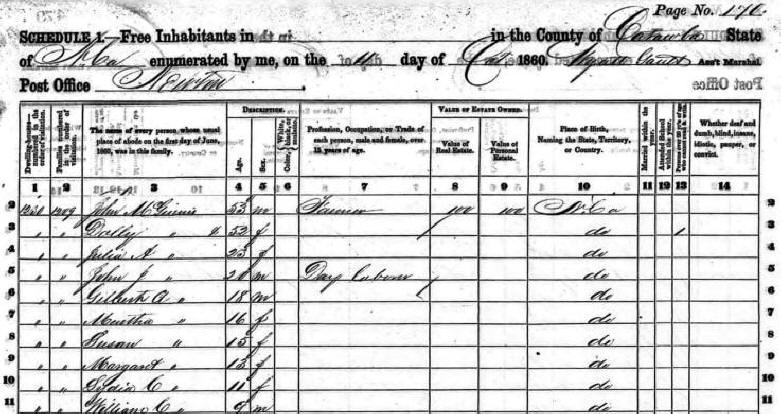 Page No. 176
SCHEDULE 1.—Free Inhabitants in in the County of Catawba State
of N. Ca enumerated by me, on the 11 day of Oct 1860. Ass't Marshal
Post Office Newton
DESCRIPTION. VALUE OF ESTATE OWNED.
Dwelling-houses— numbered in the order of visitation.
Families numbered in the order of visitation.
The name of every person whose usual place of abode on the first day of June, 1860, was in this family.
Age.
Sex.
Color, {White, black, or mulatto.
Profession, Occupation, or Trade of each person, male and female, over 15 years of age.
Value of Real Estate.
Value of Personal Estate.
Place of Birth, Naming the State, Territory, or Country.
Married within the year.
Attended School within the year.
Persons over 20 y'rs of age who cannot read & write.
Whether deaf and dumb, blind, insane, idiotic, pauper, or convict.
1 2 3 4 5 6 7 8 9 10 11 12 13 14
2 1230 1209 John McGinnis 53 m Farmer 100 100 N. Ca 2
3 " " Dolly " 52 f do / 3
4 " " Julia A " 23 f do 4
5 " " John J " 20 m Day Labour do 5
6 " " Gilbert A " 18 m do 6
7 " " Martha " 16 f do 7
8 " " Susan " 15 f do 8
9 " " Margaret " 13 f do 9
10 " " Lydia C " 11 f do 10
11 " " William C " 9 m do 11